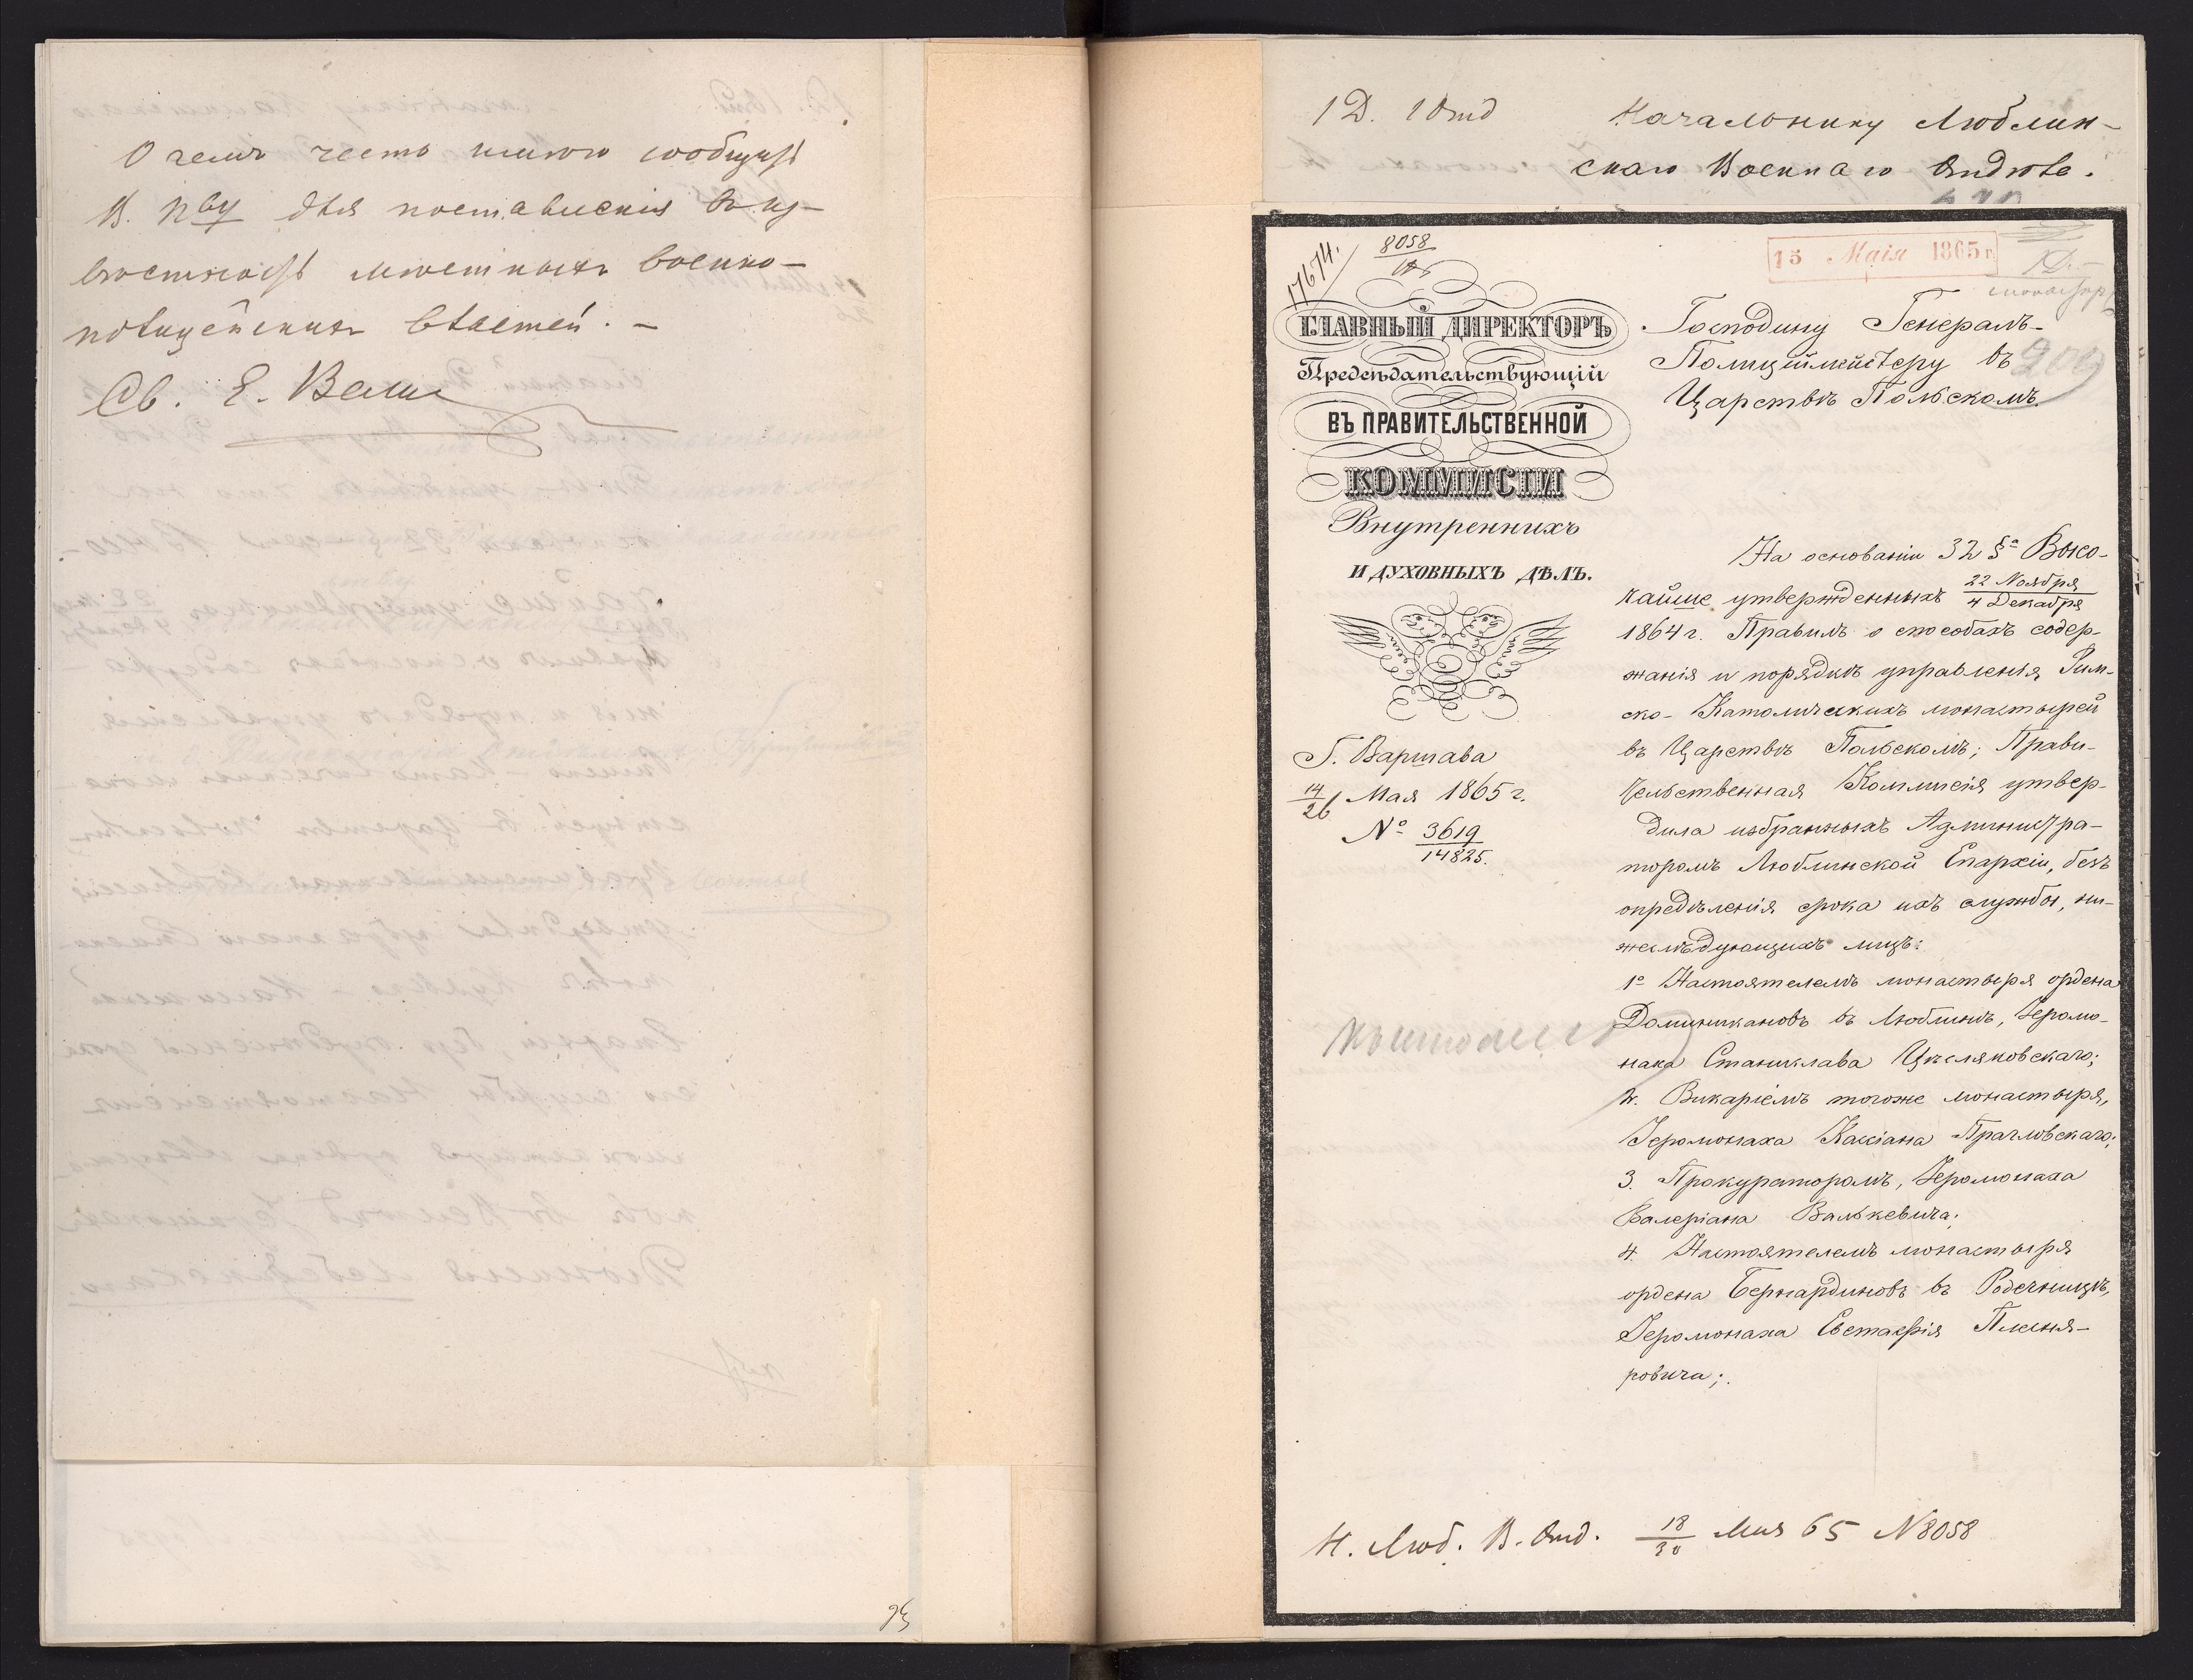 О чемъ честь имѣю сообщить
В. Пву для поставленія въ из-
вѣстность мѣстныхъ военно-
полицейскихъ властей. —
Св. Е.
1 Д. 1 Отд
Начальнику Люблин-
скаго Военнаго Отдѣла.
17674.
8058
15 Маія 1865 г.
Господину Генералъ-
Полиціймейстеру въ
Царствѣ Польскомъ.
200
ГЛАВНЫЙ ДИРЕКТОРЪ
Предсѣдательствующій
ВЪ ПРАВИТЕЛЬСТВЕННОЙ
КОММИСІИ
Внутреннихъ
И ДУХОВНЫХЪ ДѢЛЪ.
Г. Варшава
14/26 Мая 1865 г.
№ 3619/14825.
На основаніи 32 § Высо-
чайше утвержденныхъ 22 Ноября/4 Декабря
1864 г. Правилъ о способахъ содер-
жанія и порядкѣ управленія Рим-
ско-Католическихъ монастырей
въ Царствѣ Польскомъ; Прави-
тельственная Коммисія утвер-
дила избранныхъ Администра-
торомъ Люблинской Епархіи, безъ
опредѣленія срока ихъ службы, ни-
жеслѣдующихъ лицъ:
1º Настоятелемъ монастыря ордена
Доминикановъ въ Люблинѣ, Іеромо-
наха Станислава Цѣсляковскаго;
2. Викаріемъ тогоже монастыря,
Іеромонаха Кассіана
3. Прокураторомъ, Іеромонаха
Валеріана Валькевича;
4. Настоятелемъ монастыря
ордена Бернардиновъ въ Радечницѣ,
Іеромонаха Евстафія
ровича;
Н. Люб. В. Отд. 18/30 Мая 65 N 8058